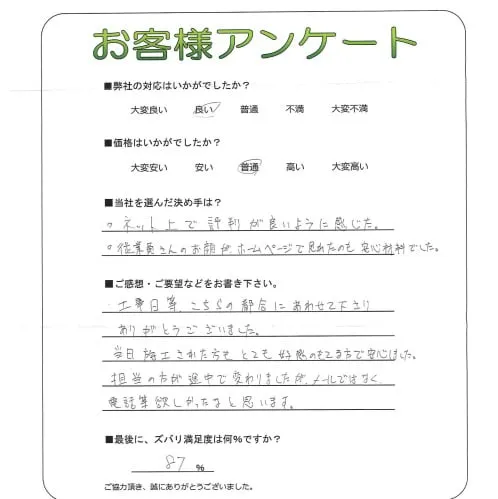 お客様アンケート
■弊社の対応はいかがでしたか？
大変良い 良い 普通 不満 大変不満
■価格はいかがでしたか？
大変安い 安い 普通 高い 大変高い
■当社を選んだ決め手は？
。ネット上で評判が良いように感じた。
。従業員さんのお顔が、ホームページで見れたのも安心材料でした。
■ご感想・ご要望などをお書き下さい。
土曜日等、こちらの都合にあわせて下さり
ありがとうございました。
当日施工された方も とても好感のもてる方で安心しました。
担当の方が途中で変わりましたが、メールではなく、
電話等欲しかったなと思います。
■最後に、ズバリ満足度は何%ですか？
87 %
ご協力頂き、誠にありがとうございました。